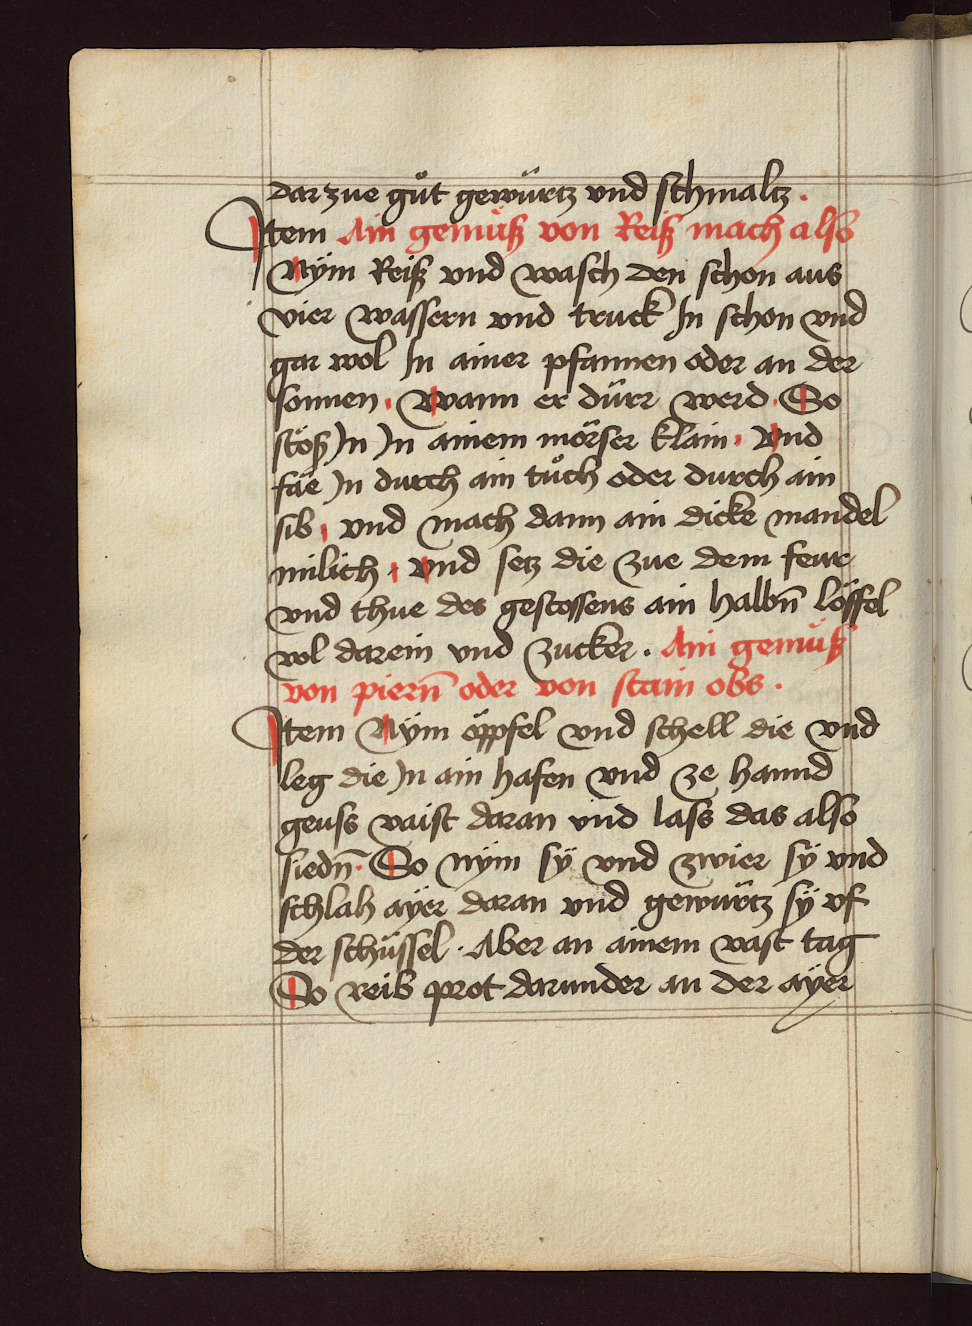 dar zue gůt gewürtz vnd schmaltz .
Item Ain gemůß von Reiß mach also
Nÿm Reiß vnd wasch den schon aus
vier wassern vnd truck In schon vnd
gar wol In ainer pfannen oder an der
sonnen . Wann er dürr werd . So
stöß In In ainem mörser klain . Vnd
fäe In durch ain tůch oder durch ain
sib , vnd mach dann ain dicke mandel
milich . Vnd setz die zue dem feur
vnd thue des gestossens ain halbn̄ löffel
vol darein vnd zucker . Ain gemůß
von piern̄ oder von stain obs .
Item Nÿm öppfel vnd schell die vnd
leg die In ain hafen vnd ze hannd
geuss vaist daran vnd lass das also
siedn̄ . So nÿm sÿ vnd zwier sÿ vnd
schlah aÿer daran vnd gewürtz sÿ vf
der schüssel . Aber an ainem vast tag
So reib prot darunder an der aÿer